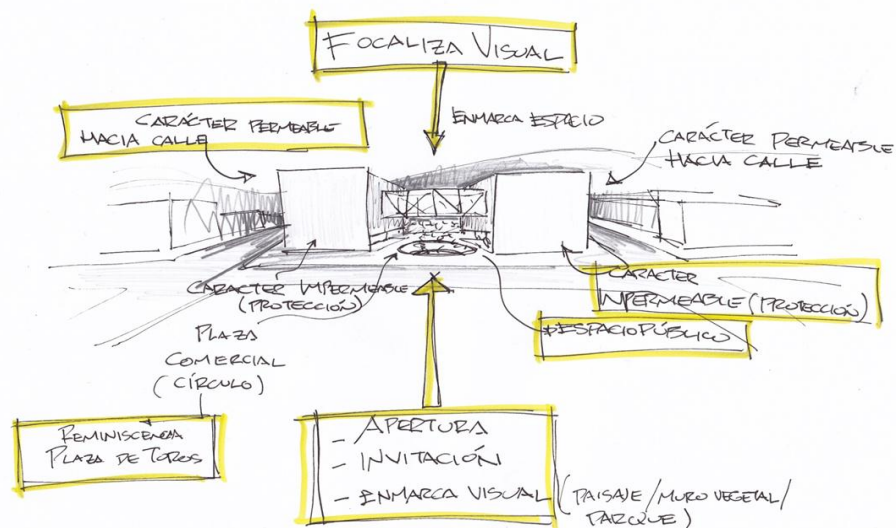 FOCALIZA VISUAL
ENMARCA ESPACIO
CARÁCTER PERMEABLE
HACIA CALLE
CARÁCTER PERMEABLE
HACIA CALLE
CARÁCTER IMPERMEABLE
(PROTECCIÓN)
CARÁCTER
IMPERMEABLE (PROTECCIÓN)
PLAZA
COMERCIAL
(CÍRCULO)
ESPACIO PÚBLICO
REMINISCENCIA
PLAZA DE TOROS
- APERTURA
- INVITACIÓN
- ENMARCA VISUAL (PAISAJE/MURO VEGETAL/
PARQUE)